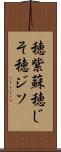 穂紫蘇穂じ
そ穂ジソ